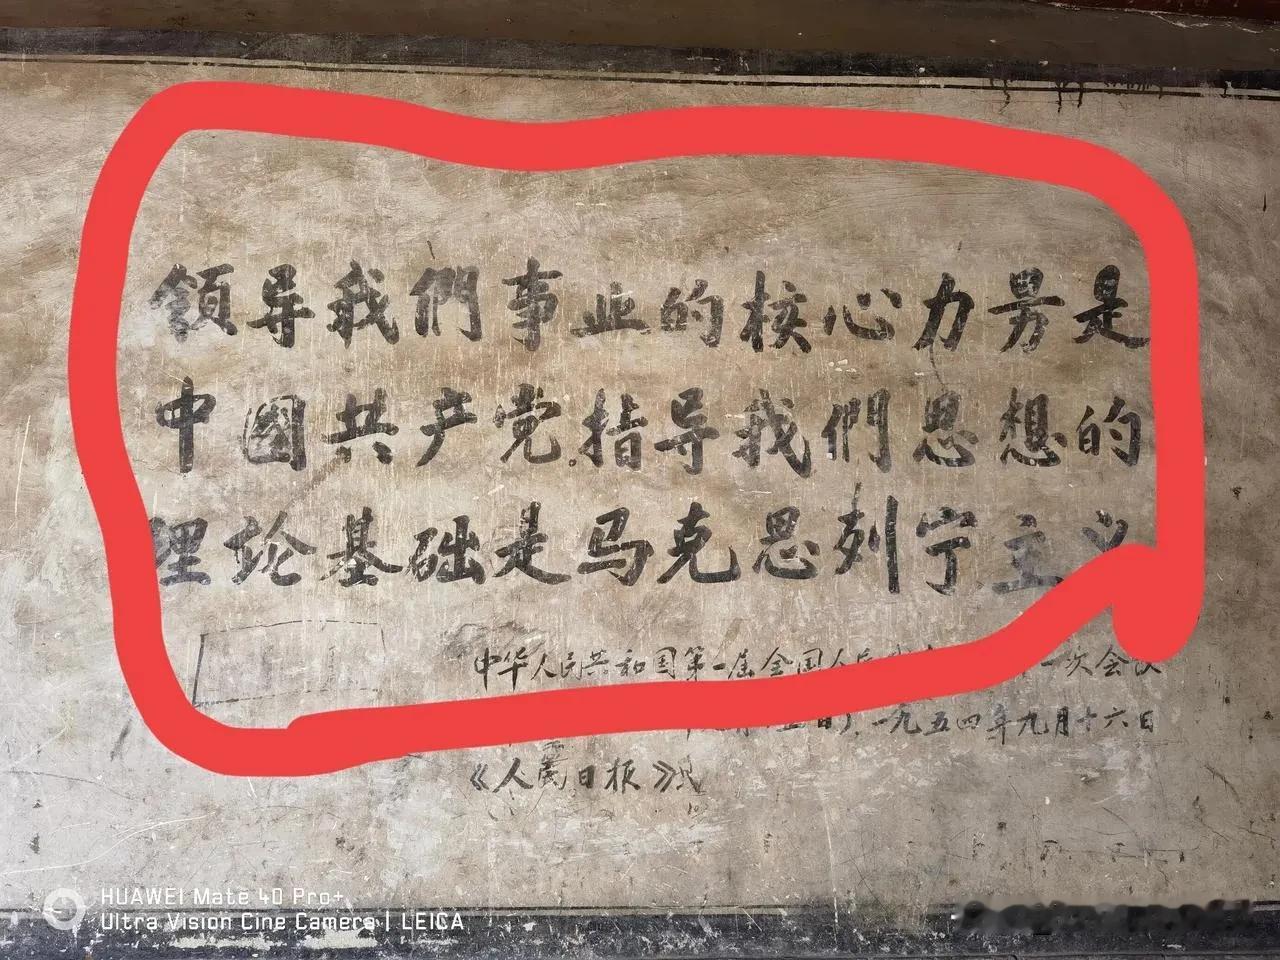 領导我們事业的核心力㔹是
中國共产党.指导我們思想的
理论基础是马克思列宁主义
中华人民共和国第一届全国人民
一次会议
一九五四年九月十六日
《人民日报》
HUAWEI Mate 40 Pro+
Ultra Vision Cine Camera | LEICA